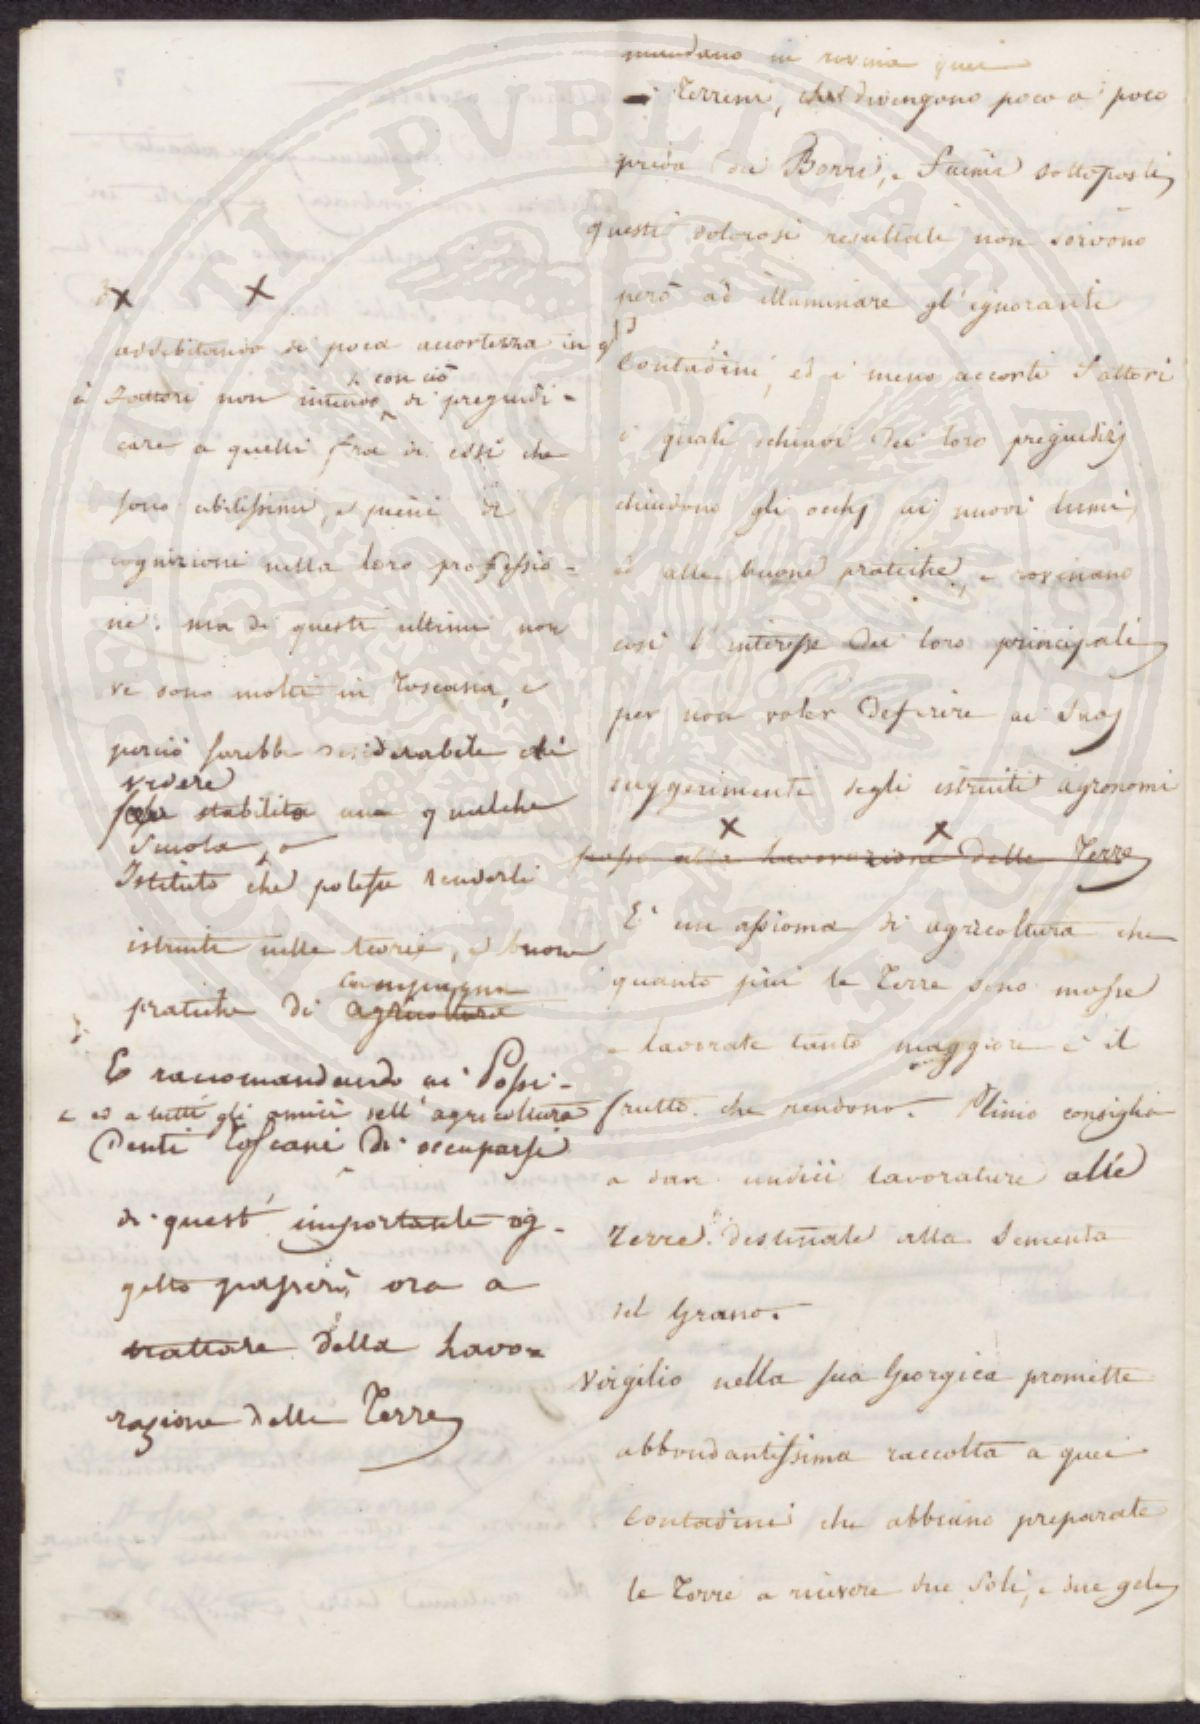 mandano in rovina quei
Terreni, che divengono poco a poco
preda dei Borri, e Fiumi sottoposti
questi dolorosi resultati non servono
però ad illuminare gl'ignoranti
Contadini, ed i meno accorti Fattori
i quali schiavi dei loro pregiudizj
chiudono gli occhj ai nuovi lumi,
ed alle buone pratiche, e rovinano
così l'interesse dei loro principali
per non voler deferire ai
suggerimenti degli istruiti agronomi
X X
passo alla Lavorazione delle Terre
È un assioma di agricoltura che
quanto più le Terre sono mosse
e lavorate tanto maggiore è il
frutto che rendono. Plinio consiglia
a dare undici lavorature alle
Terre destinate alla Sementa
del Grano.
Virgilio nella sua Georgica promette
abbondantissima raccolta a quei
Contadini che abbiano preparate
le Terre a ricevere due Soli, e due geli
X X
addebitando di poca accortezza i
Fattori non intendo con ciò di pregiudi-
care a quelli fra di essi che
sono abilissimi, e pieni di
cognizioni nella loro professio-
ne: ma di questi ultimi non
ve sono molti in Toscana, e
perciò sarebbe desiderabile di
vedere
stabilita una qualche
Scuola, o
Istituto che potesse renderli
istruiti nelle teorie, e buone
campagna
pratiche di agricoltura
E raccomandando ai Possi-
e ad a tutti gli amici dell'agricoltura
denti Toscani di occuparsi
di quest'importante og-
getto passerò ora a
trattare della Lavo-
razione delle Terre